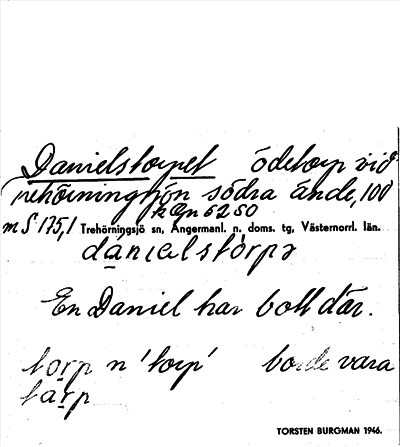 Danielstorpet ödetorp vid
Trehörningsjön södra ände, 100
kgn 5250
m S 175,1 Trehörningsjö sn, Ångermanl. n. doms. tg, Västernorrl. län.
dánıalstòrpə
En Daniel har bott där.
torp n 'torp' borde vara
tårp
TORSTEN BURGMAN 1946.